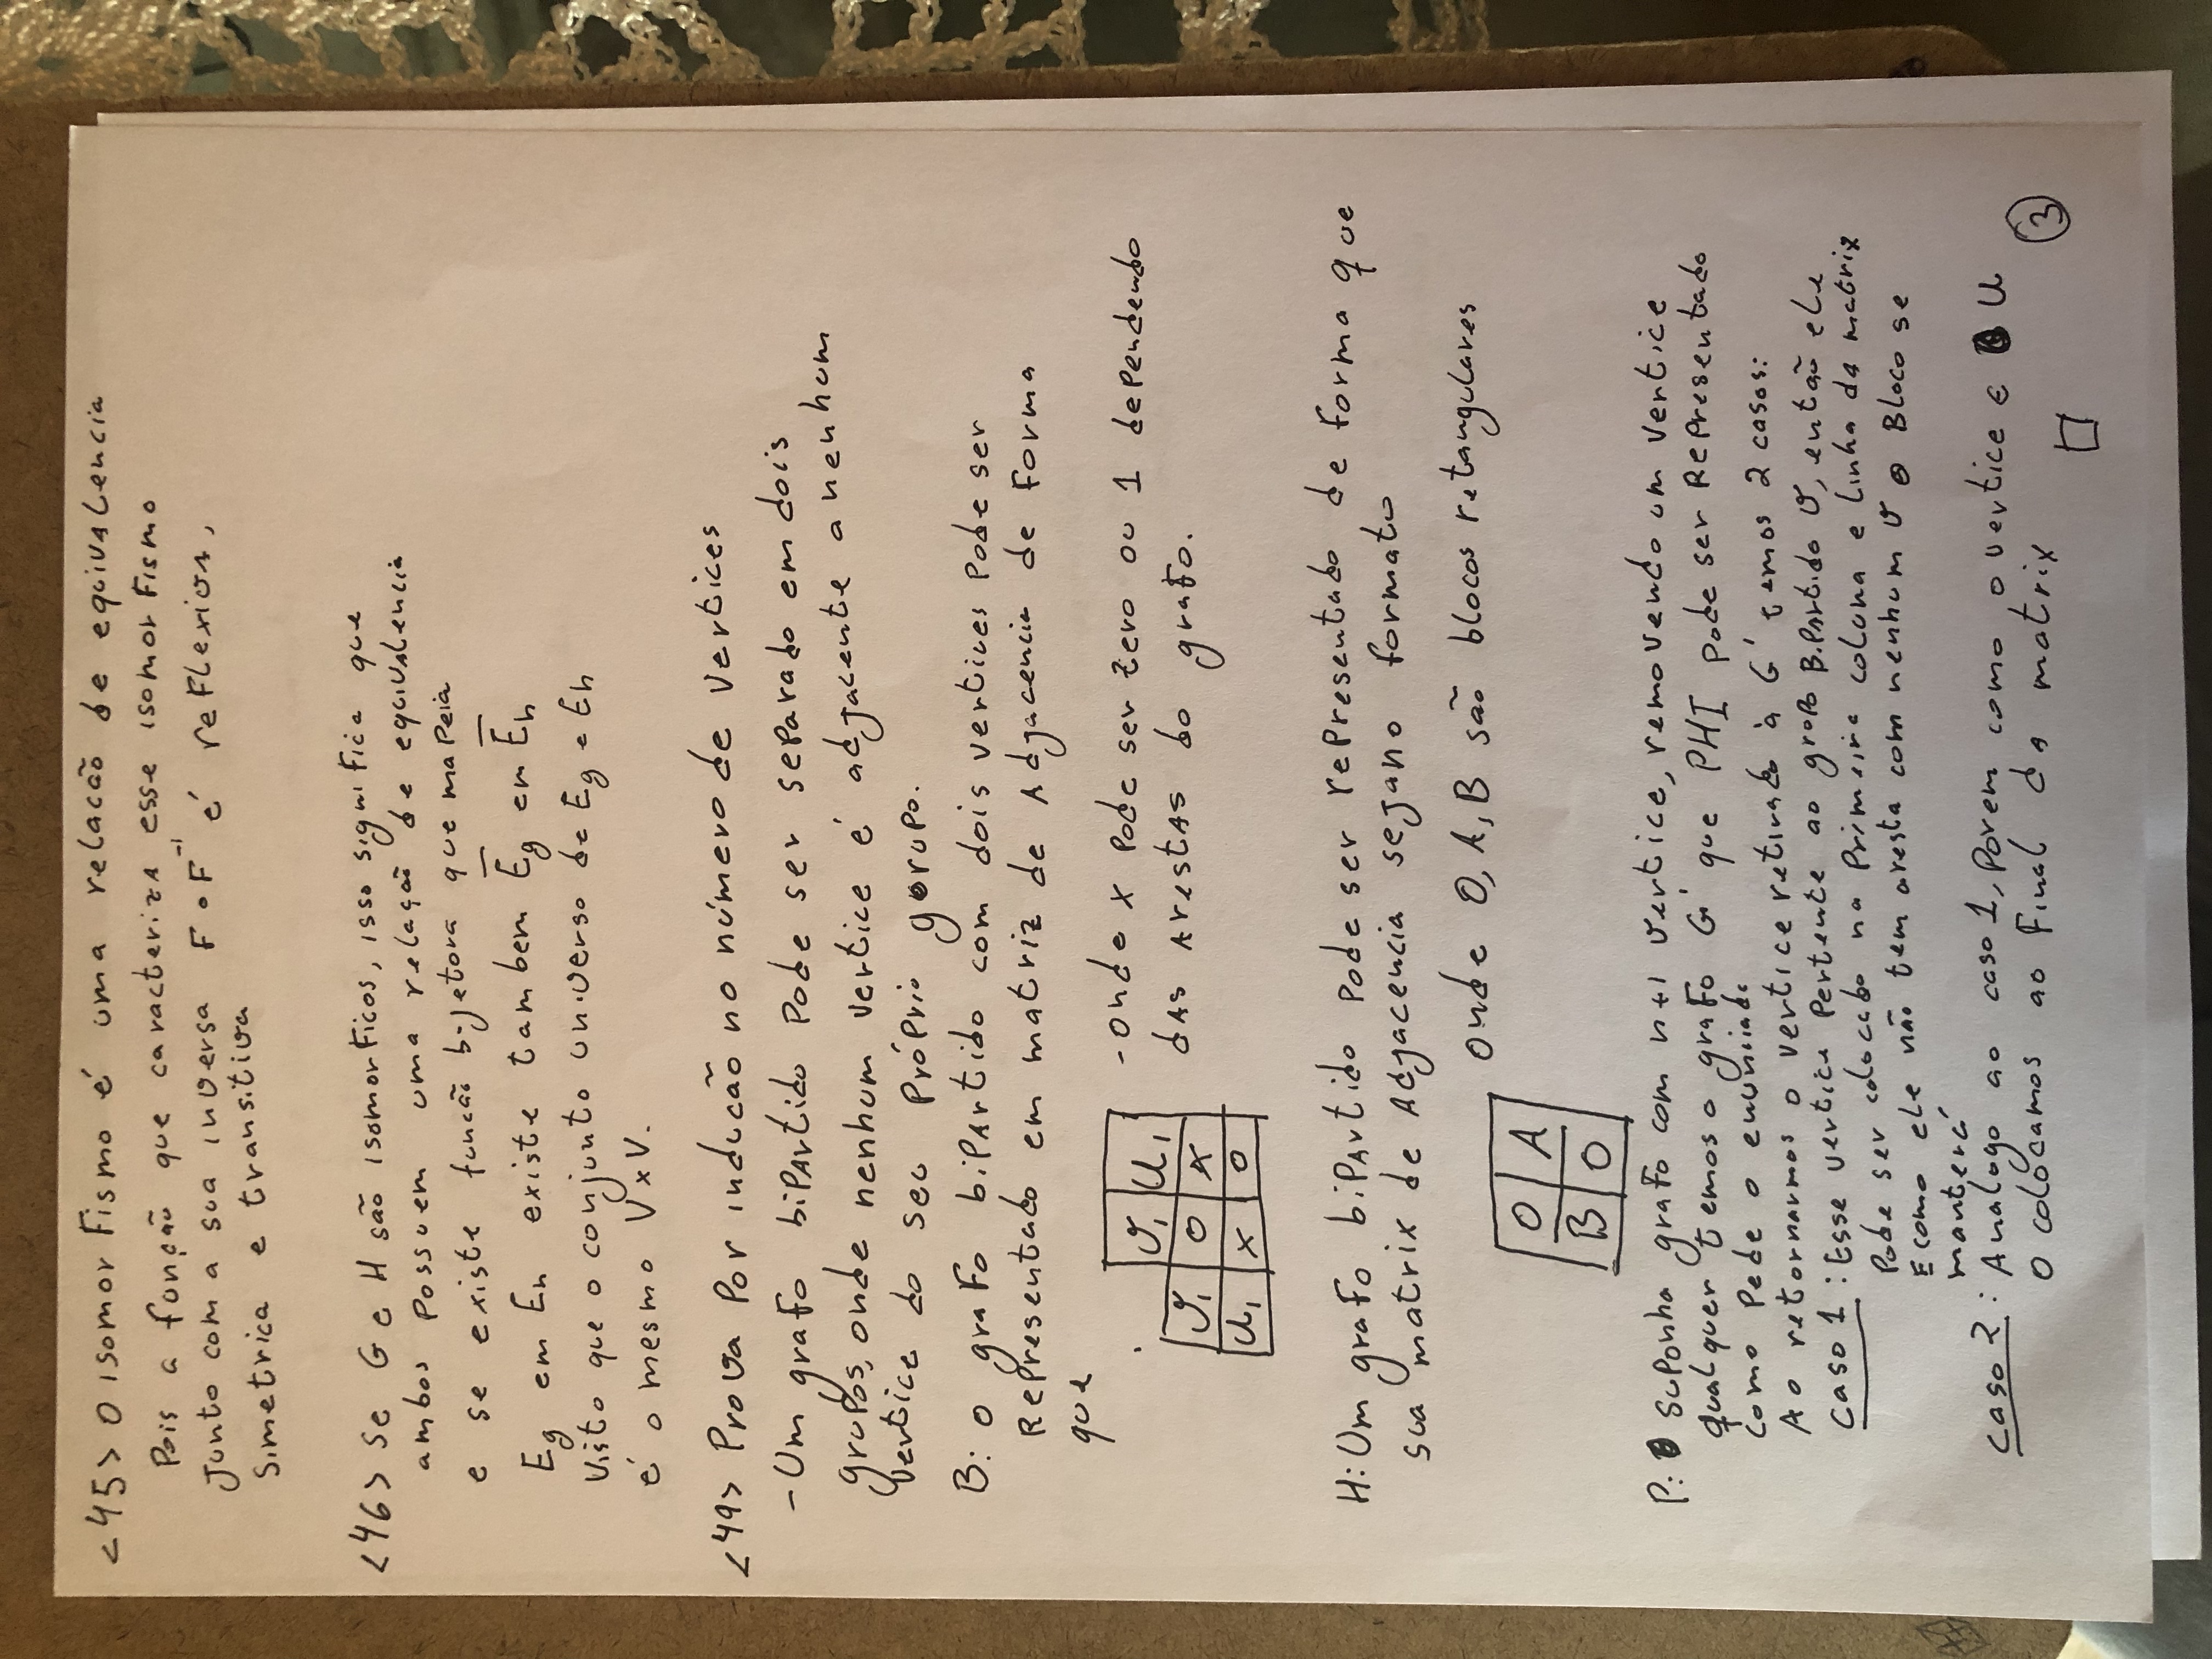 <45> O isomorfismo é uma relacão de equivalencia
Pois a função que caracteriza esse isomorfismo
Junto com a sua inversa F∘F⁻¹ é reflexiva,
Simetrica e transitiva
<46> Se G e H são isomorficos, isso significa que
ambos possuem uma relação de equivalencia
e se existe funcão bijetora que mapeia
Eg em Eh existe tambem E̅g em E̅h
Visto que o conjunto universo de Eg e Eh
é o mesmo V x V.
<49> Prova por inducão no número de vertices
- Um grafo bipartido pode ser separado em dois
grupos, onde nenhum vertice é adjacente a nenhum
vertice do seu próprio gorupo.
B: o grafo bipartido com dois vertices pode ser
Representado em matriz de Adjacencia de forma
que
V₁ U₁
V₁ 0 x
U₁ x 0
- onde x pode ser zero ou 1 dependendo
das arestas do grafo.
H: Um grafo bipartido pode ser representado de forma que
sua matrix de Adjacencia seja no formato
onde O, A, B são blocos retangulares
O A
B O
P: suponha grafo com n+1 vertice, removendo um vertice
qualquer temos o grafo G' que PHI pode ser Representado
como pede o enunciado
Ao retornarmos o vertice retirado à G' temos 2 casos:
caso 1: Esse vertice pertente ao grupo Bipartido V, então ele
pode ser colocado na primeira coluna e linha da matriz
E como ele não tem aresta com nenhum V o Bloco se
manterá
caso 2: Analogo ao caso 1, porem como o vertice ∈ U
o colocamos ao final da matrix
□
3